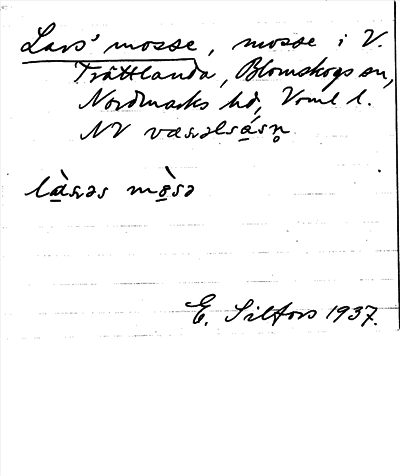 Lars' mosse, mosse i V.
Trättlanda, Blomskogs sn,
Nordmarks hd, Vrml l.
NV
là̱sɷs mò̱sə
E. Silfors 1937.